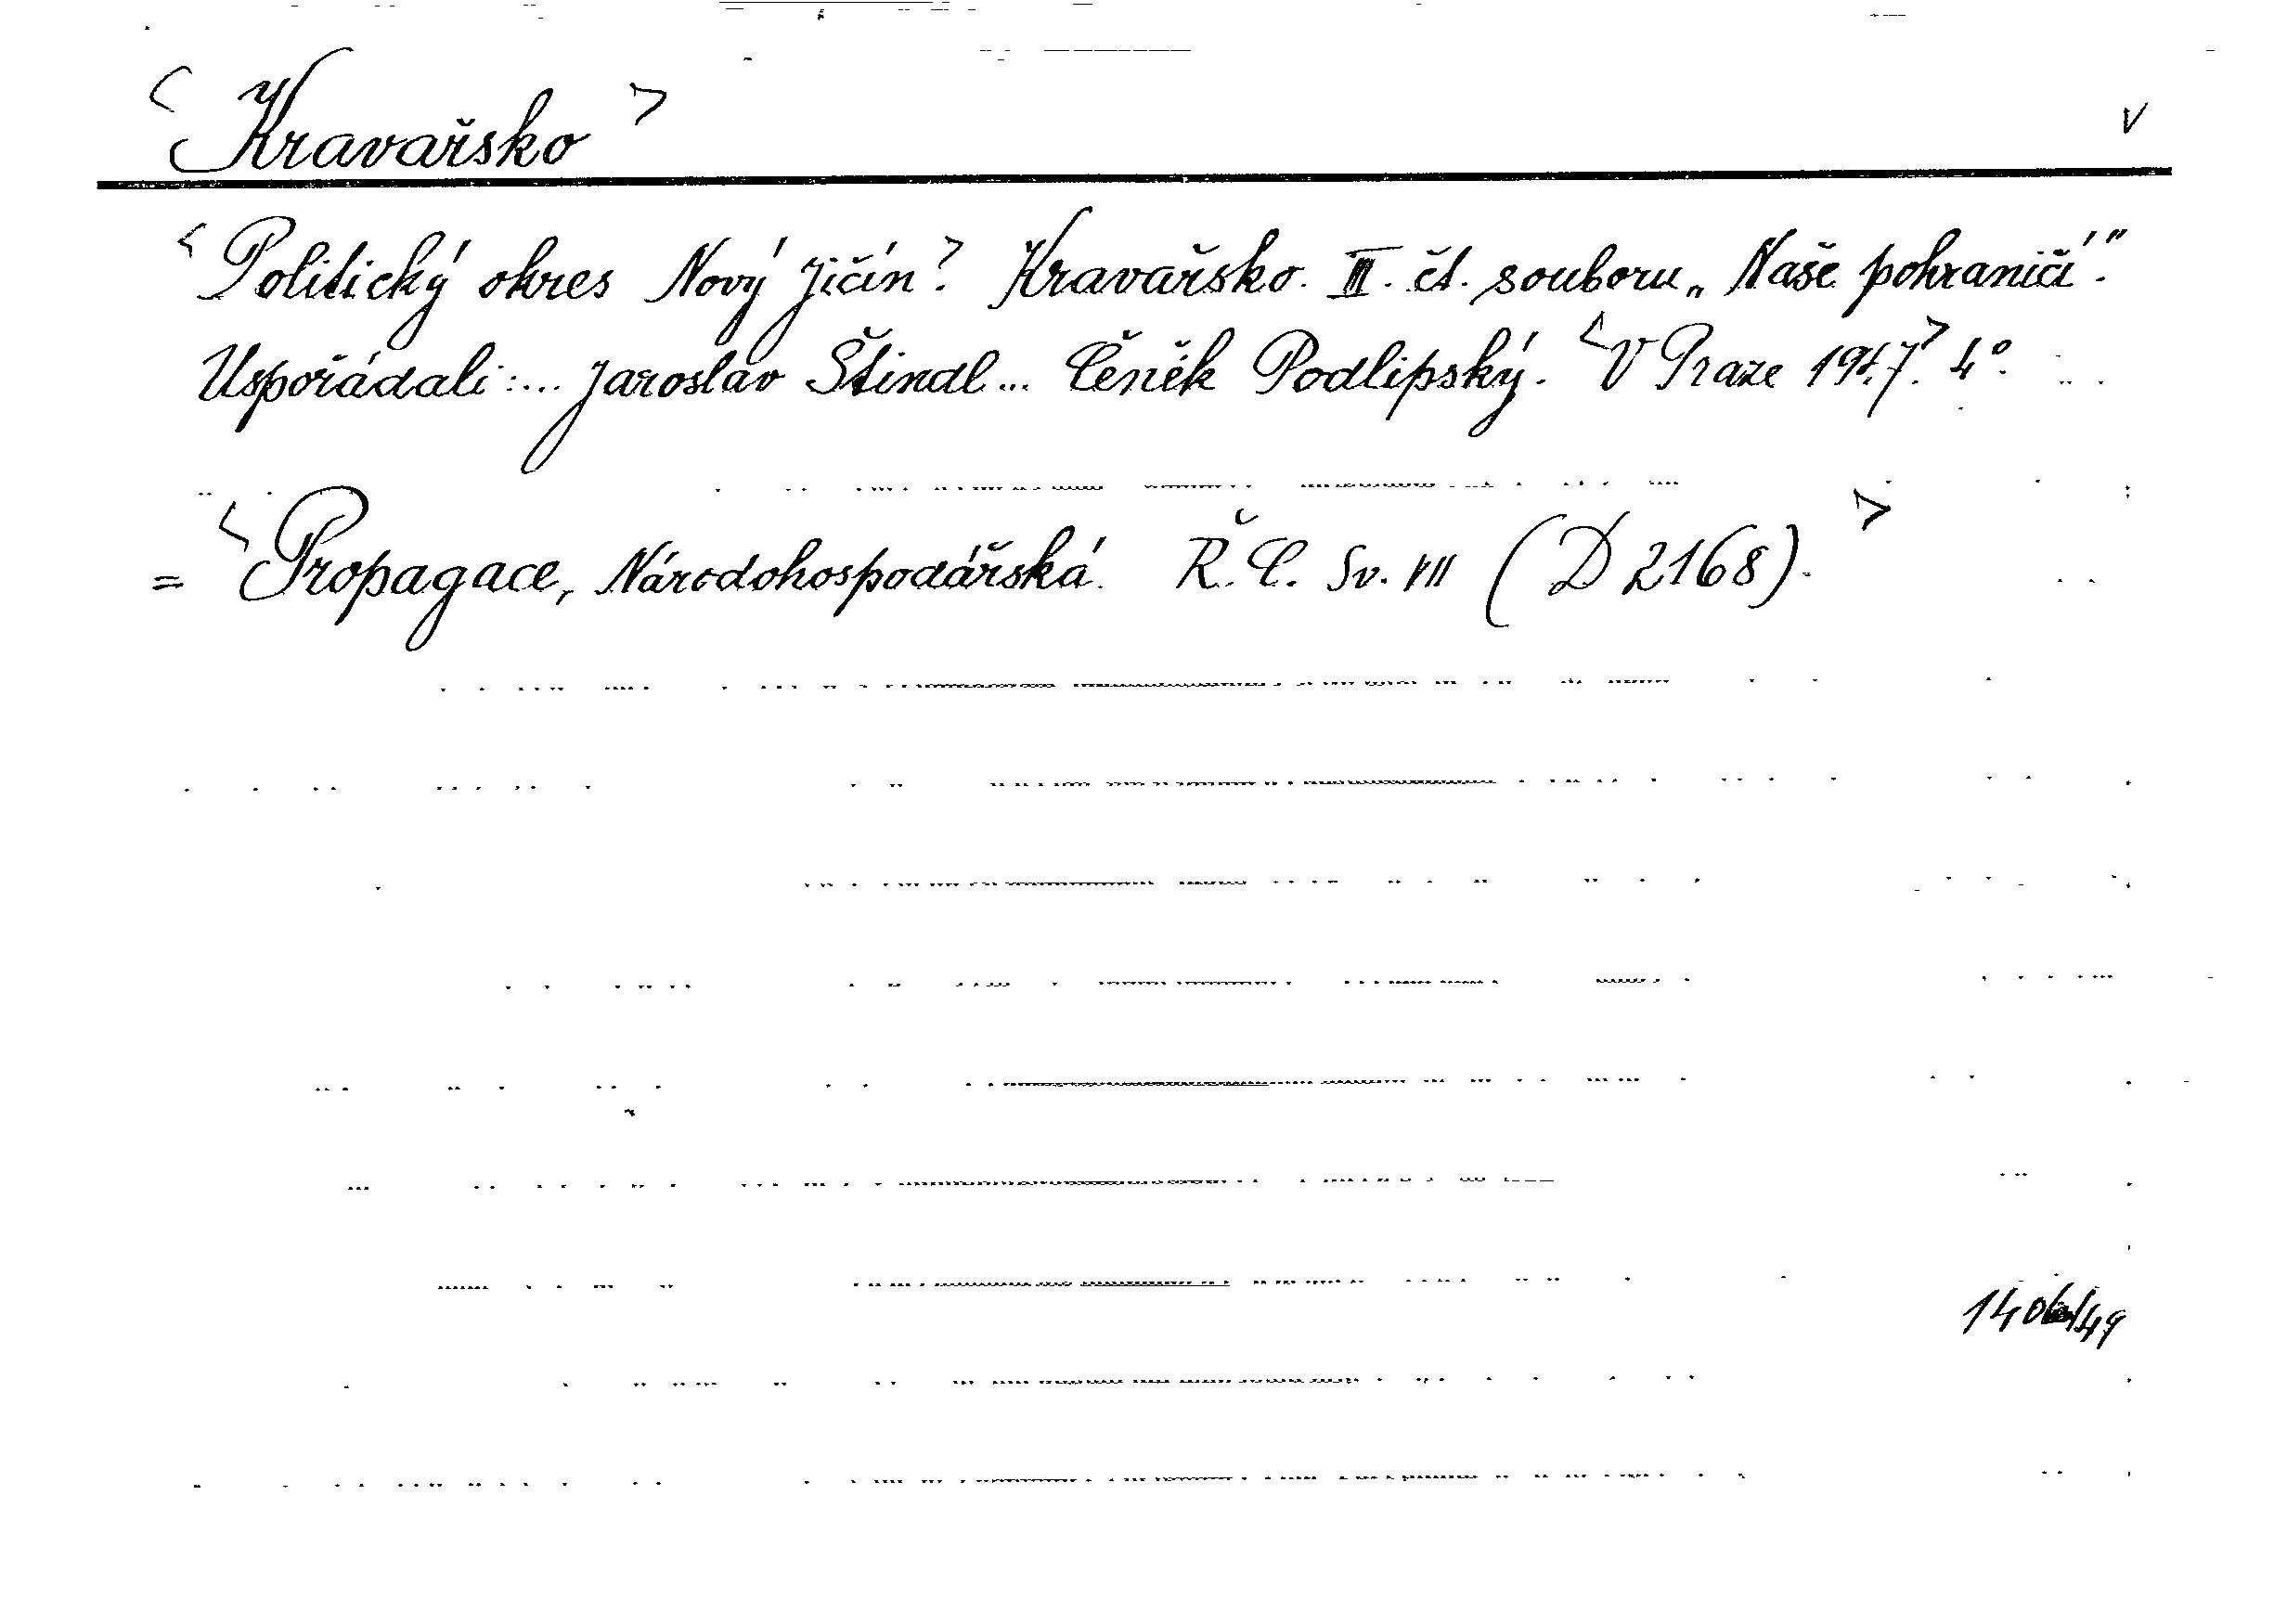 <Kravařsko> V
<Politický okres Nový Jičín> Kravařsko. III. čt. souboru „Naše pohraničí".
Uspořádali:... Jaroslav Štindl... Čeněk Podlipský. <V Praze 1947.> 4°.
= <Propagace, Národohospodářská. Ř. Č. Sv. VII (D 2168).>